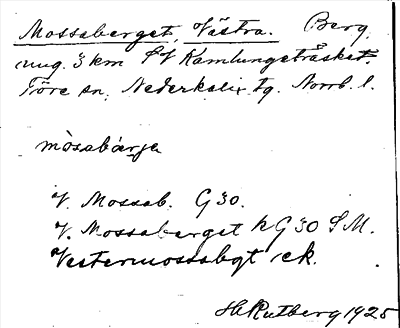 Mossaberget, Västra. Berg
ung. 3 km SV Kamlungeträsket.
Töre sn, Nederkalix tg. Norrb. l.
mòsabær̀je
V. Mossab. G 30.
V. Mossaberget k G 30 S M.
Vestermossabgt ek.
H Rutberg 1925